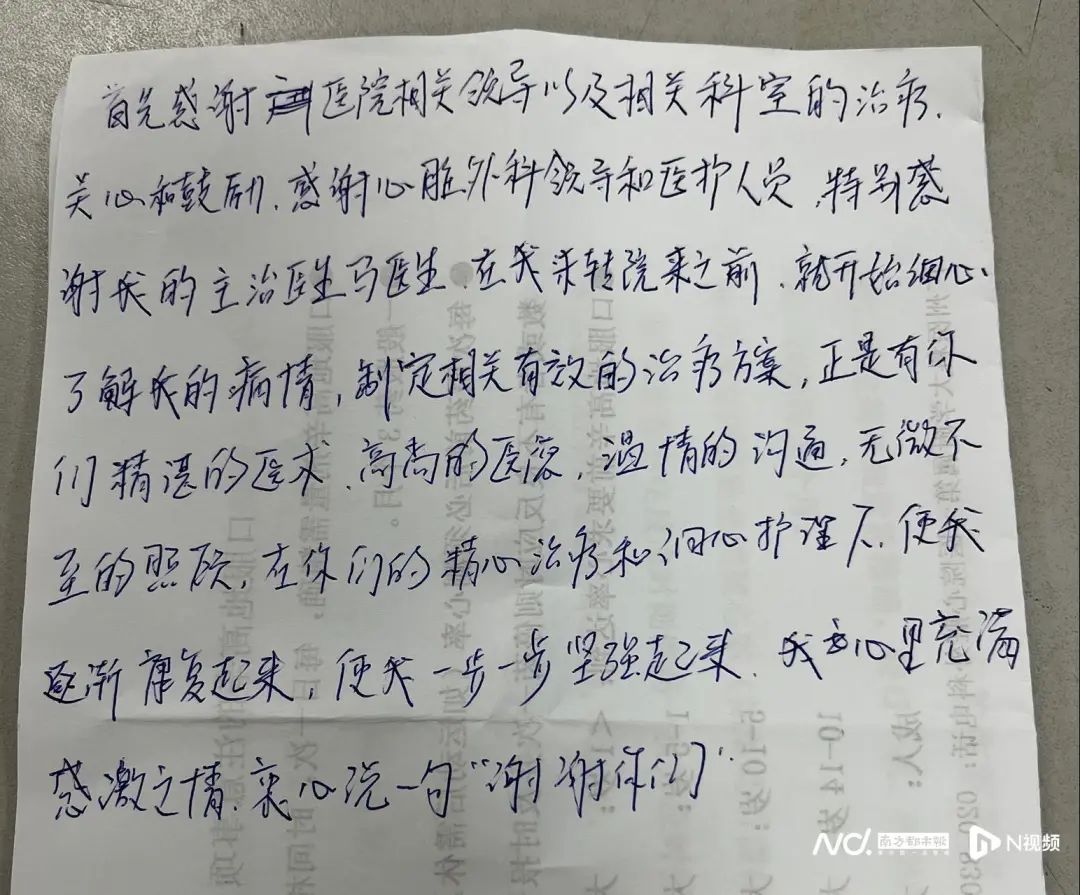 首先感谢医院相关领导以及相关科室的治疗、
关心和鼓励、感谢心脏外科领导和医护人员，特别感
谢我的主治医生马医生、在我未转院来之前、就开始细心
了解我的病情，制定相关有效的治疗方案，正是有你
们精湛的医术、高尚的医德，温情的沟通，无微不
至的照顾，在你们的精心治疗和细心护理下、使我
逐渐康复起来，使我一步一步坚强起来、我心里充满
感激之情、衷心说一句“谢谢你们”
10-14岁
5-10岁：
成人：
ND. 南方都市报 N视频